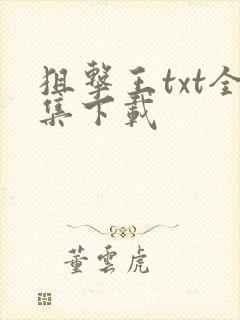 狙擊王txt全
集下載
董雲虎